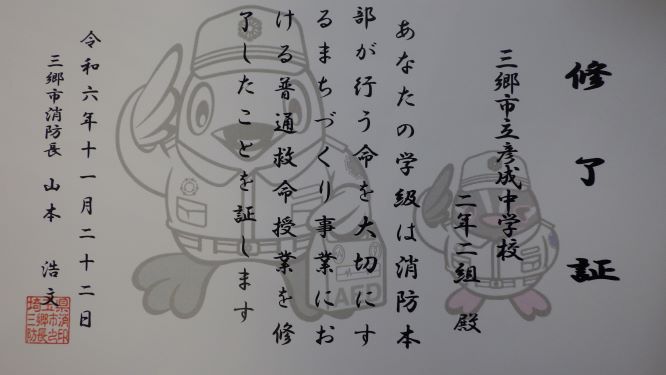 修了証
三郷市立彦成中学校
二年二組 殿
あなたの学級は消防本
部が行う命を大切にす
るまちづくり事業にお
ける普通救命授業を修
了したことを証します
令和六年十一月二十二日
三郷市消防長 山本 浩文
AED